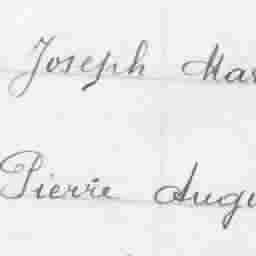 Joseph Mar
Pierre Augu